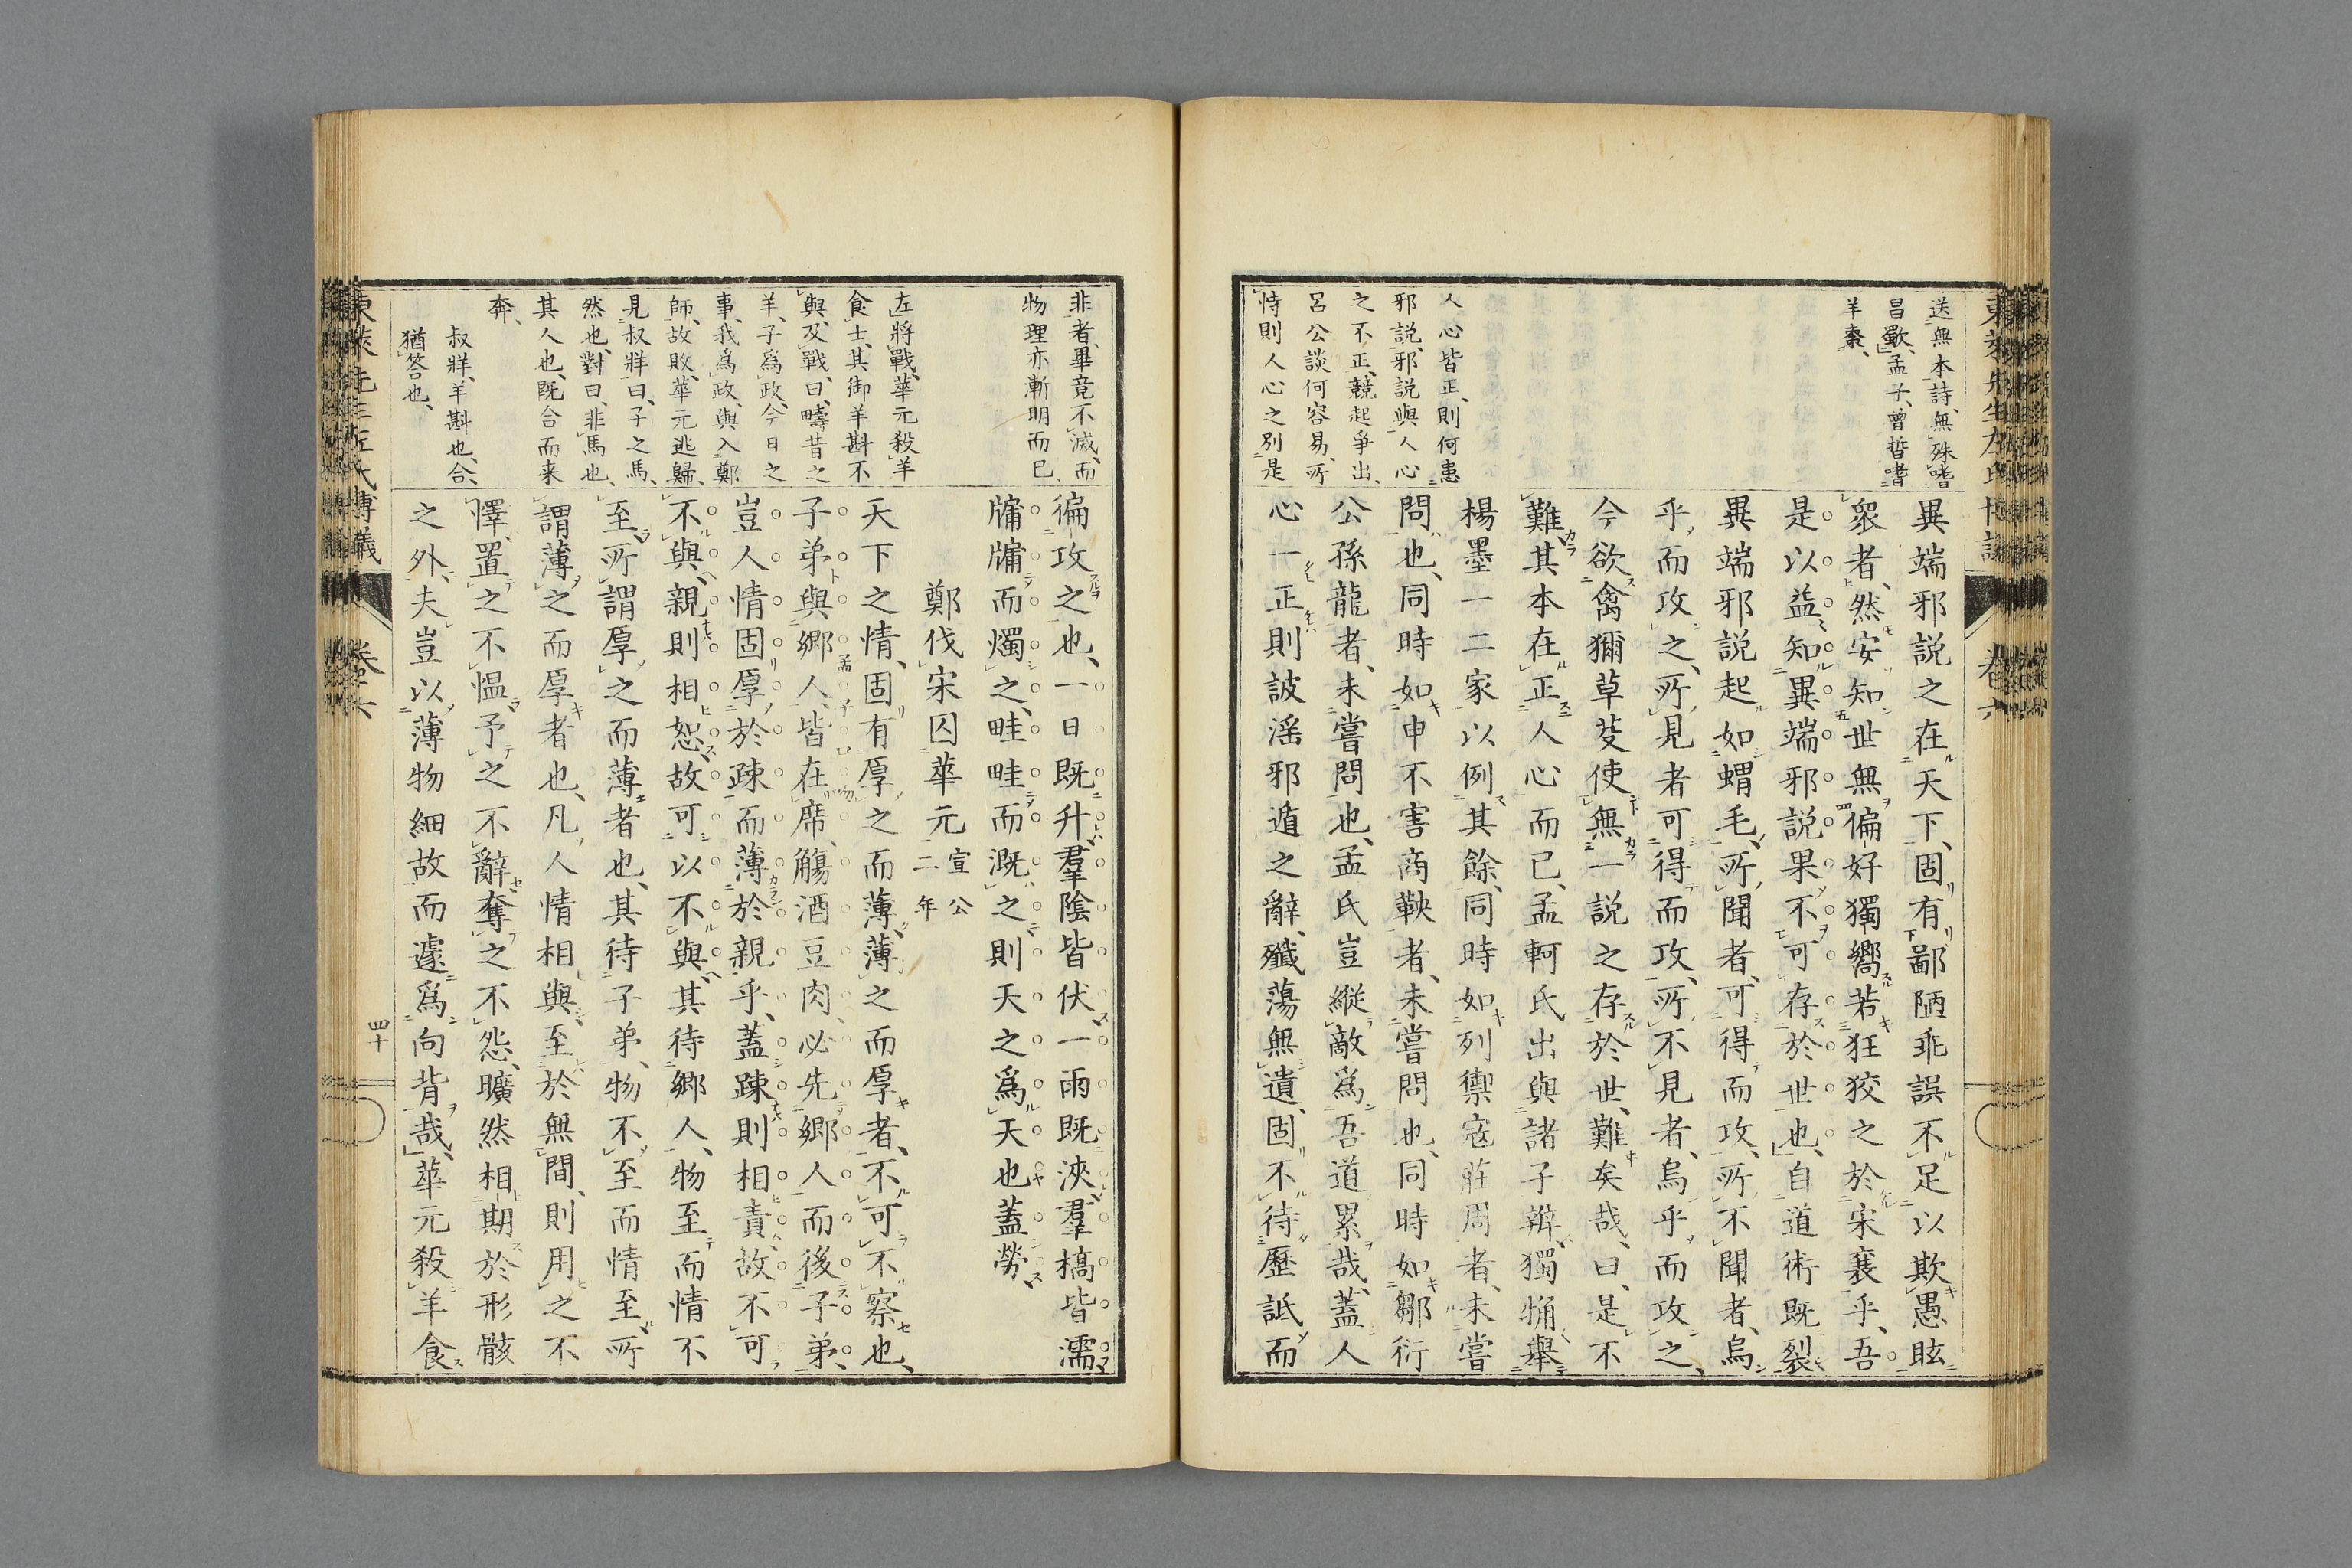 送無本詩、無殊嗜
昌歜、孟子、曾晳嗜
羊棗、
人心皆正、則何患
邪説、邪説與人心
之不正、競起爭出、
呂公談何容易、所
恃則人心之別是
異端邪説之在天下、固有鄙陋乖誤不足以欺愚眩
衆者、然安知世無偏好獨嚮若狂狡之於宋襄乎、吾
是以益知異端邪説果不可存於世也、自道術既裂
異端邪説起如蝟毛、所聞者、可得而攻、所不聞者、烏
乎而攻之、所見者可得而攻、所不見者、烏乎而攻之、
今欲禽獮草芟使無一説之存於世、難矣哉、曰、是不
難、其本在正人心而已、孟軻氏出與諸子辯、獨觕舉
楊墨一二家以例其餘、同時如列禦寇莊周者、未嘗
問也、同時如申不害商鞅者、未嘗問也、同時如鄒衍
公孫龍者、未嘗問也、孟氏豈縱敵爲吾道累哉、蓋人
心一正則詖滛邪遁之辭、殲蕩無遺、固不待歷詆而
東萊先生左氏博議
卷六
非者、畢竟不滅、而
物理亦漸明而已、
左將戰、華元殺羊
食士、其御羊斟不
與、及戰、曰、疇昔之
羊、子爲政、今日之
事、我爲政、與入鄭
師、故敗、華元逃歸、
見叔牂曰、子之馬、
然也、對曰、非馬也、
其人也、既合而来
奔、
叔牂、羊斟也、合、
猶答也、
徧攻之也、一日既升、羣陰皆伏一雨既浹、羣槁皆濡、
牖牖而燭之、畦畦而溉之、則天之爲天也蓋勞、
鄭伐宋囚華元 宣公二年
天下之情、固有厚之而薄、薄之而厚者、不可不察也、
子弟與鄉人、皆在席、觴酒豆肉、必先鄉人而後子弟、
豈人情固厚於疎而薄於親乎、蓋疎則相責、故不可
不與、親則相恕、故可以不與、其待鄉人、物至而情不
至、所謂厚之而薄者也、其待子弟、物不至而情至、所
謂薄之而厚者也、凡人情相與、至於無間、則用之不
懌、置之不愠、予之不辭、奪之不怨、曠然相期於形骸
之外、夫豈以薄物細故而遽爲向背哉、華元殺羊食
東萊先生左氏博議
卷六
四十